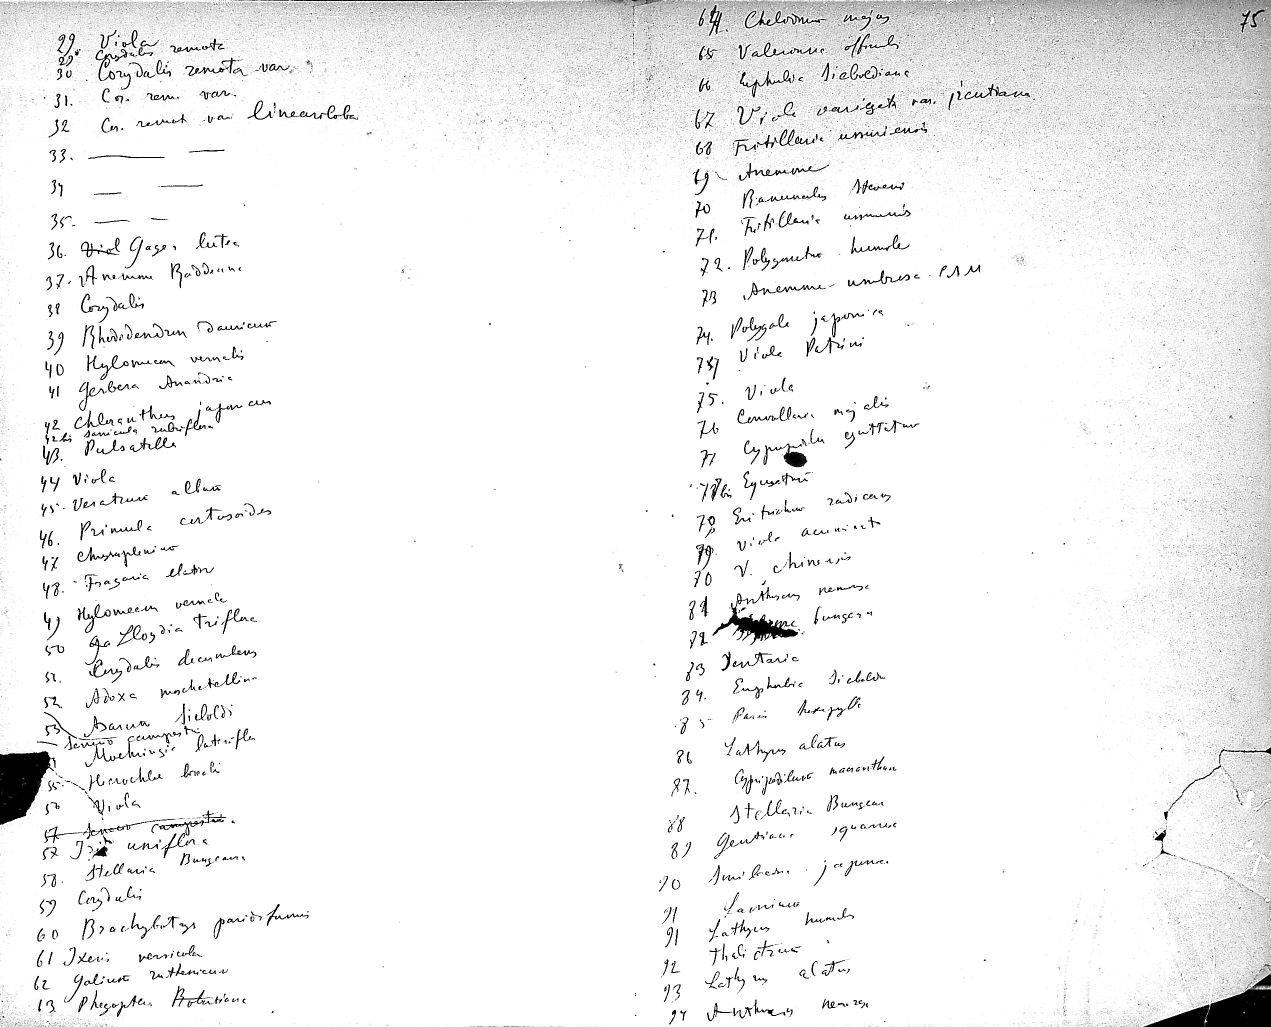 29. Viola
29. Corydalis remota
30. Corydalis remota var.
31. Cor. rem. var.
32 Cor. remot var lineariloba
33. —— ——
34 —— ——
35. —— —
36. Viol Gagea lutea
37. Anemone Raddeana
38 Corydalis
39 Rhododendron dauricum
40 Hylomecon vernalis
41 Gerbera Anandria
42 Chloranthus japonicus
42 bis Sanicula rubriflora
43. Pulsatilla
44 Viola
45. Veratrum album
46. Primula cortusoides
47 Chrysosplenium
48. Fragaria elatior
49 Hylomecon vernale
50 Ga Lloydia triflora
51. Corydalis decumbens
52 Adoxa moschatellina
53 Asarum Sieboldi
Senecio campestris
Moehringia lateriflora
55. Hierochloa borealis
56 Viola
57 Senecio campestris.
57 Iris uniflora
58. Stellaria Bungeana
59 Corydalis
60 Brachybotrys paridiformis
61 Ixeris versicolor
62 Galium ruthenicum
63 Phegopteris
75
64. Chelidonium majus
65 Valeriana officinalis
66 Euphorbia Sieboldiana
67 Viola variegata var.
68 Fritillaria ussuriensis
69 Anemone
70 Ranunculus Steveni
71. Fritillaria ussuriensis
72. Polygonatum humile
73 Anemone umbrosa CAM
74. Polygala japonica
75 Viola Patrini
75. Viola
76 Convallaria majalis
77 Cypripedilum guttatum
78 bis Equisetum
78 Eritrichium radicans
79 Viola acuminata
80 V. chinensis
81 Anthriscus nemorosa
82 bungeana
83 Dentaria
84. Euphorbia Sieboldi
85 Paris hexaphylla
86 Lathyrus alatus
87. Cypripedilum macranthum
88 Stellaria Bungeana
89 Gentiana squarrosa
90 Smilacina japonica
91
91 Lathyrus humilis
92 Thalictrum
93 Lathyrus alatus
94 Anthriscus nemorosa